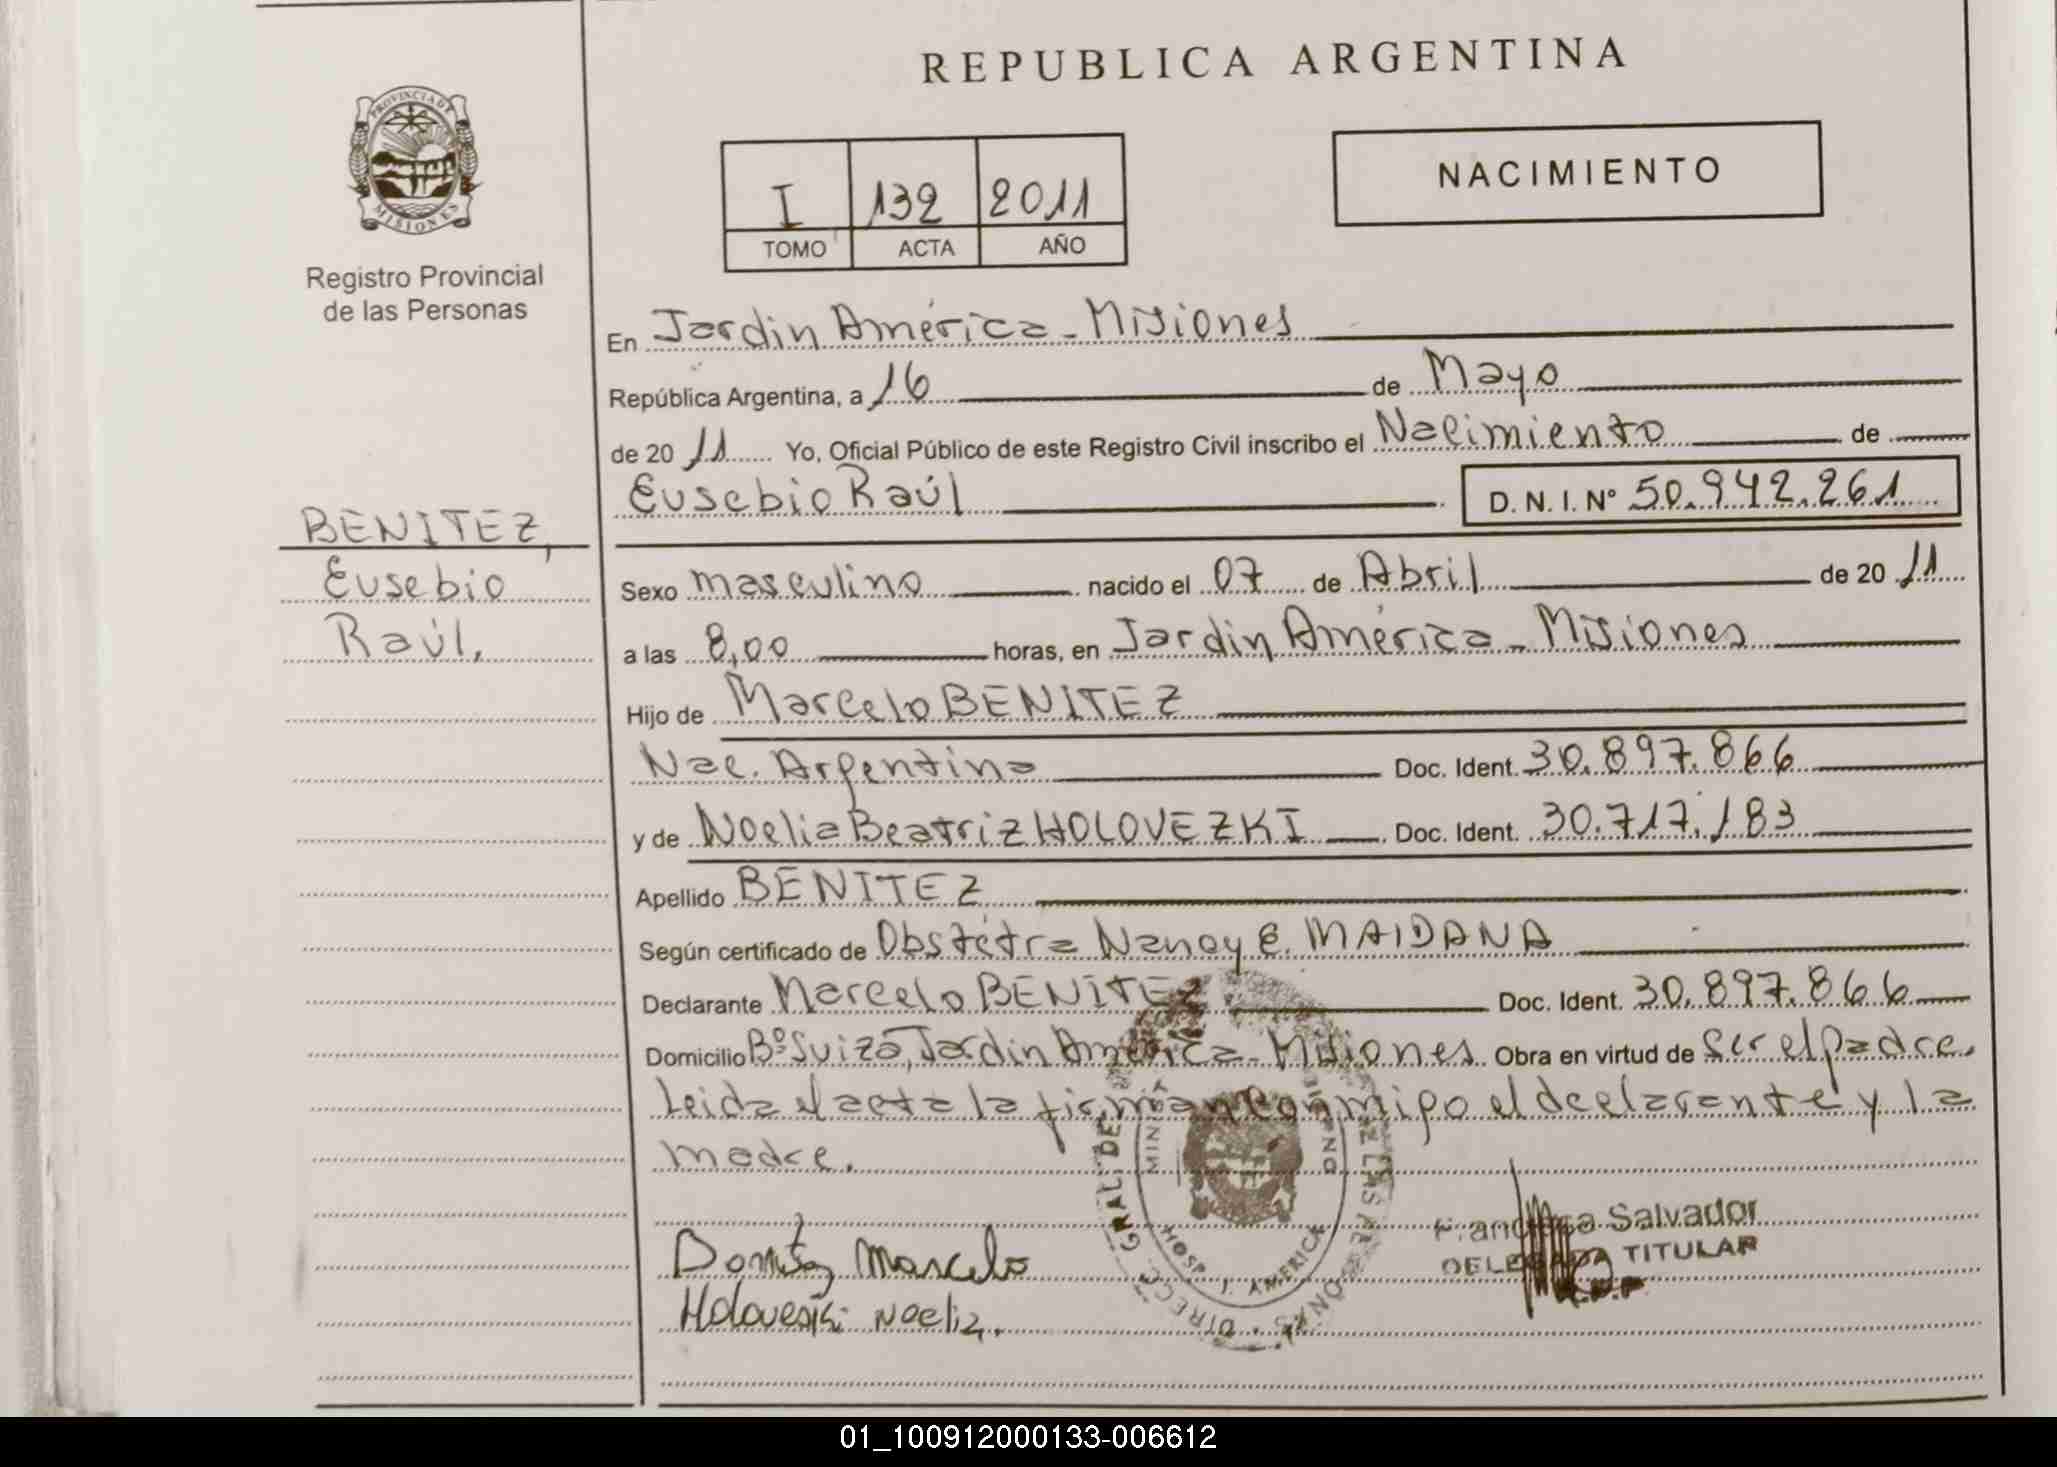 REPUBLICA ARGENTINA
PROVINCIA DE
MISIONES
Registro Provincial
de las Personas
NACIMIENTO
I 132 2011
TOMO ACTA AÑO
En Jardin América - Misiones
República Argentina, a 16 de Mayo
de 20 11 Yo, Oficial Público de este Registro Civil inscribo el Nacimiento de
Eusebio Raúl D. N. I. Nº 50.942.261
BENITEZ,
Eusebio
Raúl.
Sexo masculino nacido el 07 de Abril de 20 11
a las 8,00 horas, en Jardin América - Misiones
Hijo de Marcelo BENITEZ
Nac. Argentina Doc. Ident. 30.897.866
y de Noelia Beatriz HOLOVEZKI Doc. Ident. 30.717.183
Apellido BENITEZ
Según certificado de Obstétra Nancy E. MAIDANA
Declarante Marcelo BENITEZ Doc. Ident. 30.897.866
Domicilio Bº Suizo, Jardin América - Misiones Obra en virtud de ser el padre.
Leida el acta la firman conmigo el declarante y la
madre.
Francisca Salvador
DELEGADA TITULAR
R.P.P.
Marcelo
Noelia.
DIRECC. GRAL DE LAS PERSONAS
HOSP. J. AMERICA
01_100912000133-006612